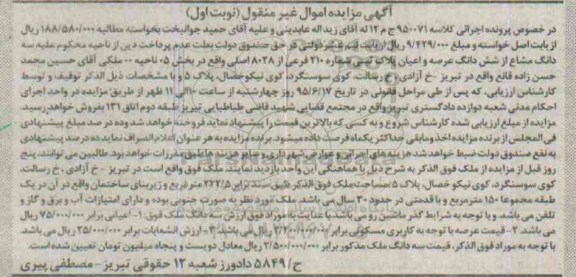 آگهی مزایده اموال غیر منقول (نوبت اول)
در خصوص پرونده اجرائی کلاسه ۹۵۰۰۷۱ ج م ۱۲ له آقای زیداله عابدینی و علیه آقای حمید جوانبخت بخواسته مطالبه ۱۸۸/۵۸۰/۰۰۰ ریال
از بابت اصل خواسته و مبلغ ۹/۴۲۹/۰۰۰ ریال از بابت نیم عشر دولتی در حق صندوق دولت بعلت عدم پرداخت دین از ناحیه محکوم علیه سه
دانگ مشاع از شش دانگ عرصه و اعیان پلاک ثبتی شماره ۲۱۰ فرعی از ۸۰۲۸ اصلی واقع در بخش ۰۵ ناحیه ۰۰ ملکی آقای حسین محمد
حسن زاده قانع واقع در تبریز - خ آزادی، خ رسالت، کوی سوسنگرد، کوی نیکوخصال، پلاک ۵ و با مشخصات ذیل الذکر توقیف و توسط
کارشناس ارزیابی، که پس از طی مراحل قانونی در تاریخ ۹۵/۶/۱۷ روز چهارشنبه از ساعت ۱۰ الی ۱۱ ظهر از طریق مزایده در واحد اجرای
احکام مدنی شعبه دوازده دادگستری تبریز واقع در مجتمع قضایی شهید قاضی طباطبایی تبریز طبقه دوم اتاق ۱۳۱ بفروش خواهد رسید.
مزایده از مبلغ ارزیابی شده کارشناس شروع و به کسی که بالاترین قیمت را پیشنهاد نماید فروخته خواهد شد و ده در صد مبلغ پیشنهادی
فی المجلس از برنده مزایده اخذ و مابقی حداکثر یکماه فرصت داده میشود. برنده مزایده به هر عنوان اعلام انصراف نماید ده در صد پیشنهادی
به نفع صندوق دولت ضبط خواهد شد هزینه های اجرائی و عوارض شهرداری و سایر هزینه ها طبق مقررات خواهد بود. طالبین می توانند، پنج
روز قبل از مزایده از ملک فوق الذکر به شرح ذیل با هماهنگی این واحد بازدید نمایند. ملک فوق واقع است در تبریز - خ آزادی، خ رسالت،
کوی سوسنگرد، کوی نیکو خصال، پلاک ۵ مساحت ملک فوق الذکر طبق سند برابر ۲۲۲/۵ متر مربع و زیربنای ساختمان واقع در آن در یک
طبقه مجموعا ۱۵۰ متر مربع و با قدمتی در حدود ۳۰ سال می باشد. ملک مورد نظر به صورت جنوبی بوده و دارای امتیازات آب و برق و گاز و
تلفن می باشد. و با توجه به شرایط گذر ماشین رو می باشد با عنایت به موارد فوق ارزش سه دانگ ملک فوق ۱-اعیانی برابر ۷۵/۰۰۰/۰۰۰ ریال
می باشد. ۲- قیمت عرصه با توجه به کاربری مسکونی برابر ۲/۴۰۰/۰۰۰/۰۰۰ ریال می باشد. ۳- ارزش انشعابات برابر ۲۵/۰۰۰/۰۰۰ ریال می باشد.
با توجه به موراد فوق الذکر، قیمت سه دانگ ملک مذکور برابر ۲/۵۰۰/۰۰۰/۰۰۰ ریال معادل دویست و پنجاه میلیون تومان تعیین شده است.
ح/۵۸۴۹ دادورز شعبه ۱۲ حقوقی تبریز - مصطفی پیری